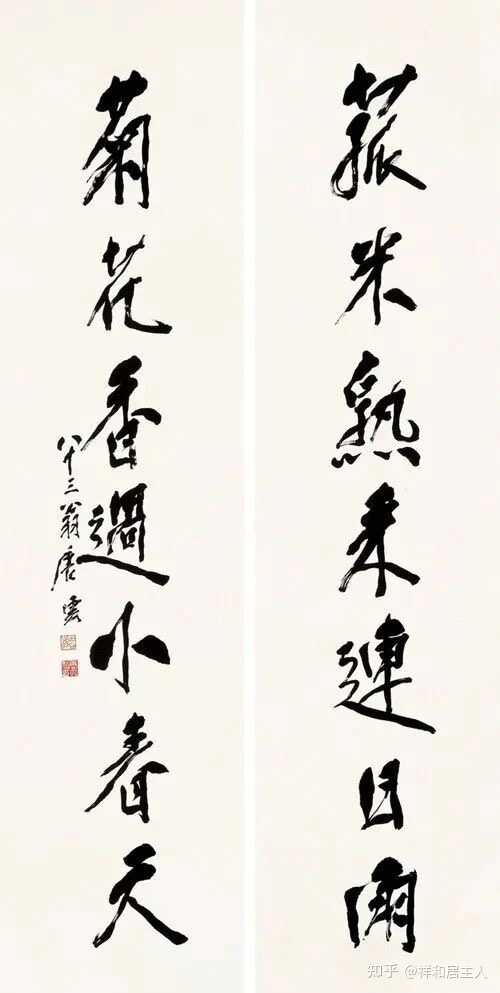 菰米熟来連日雨
菊花香過小春天
八十三翁唐雲
知乎 @祥和居主人